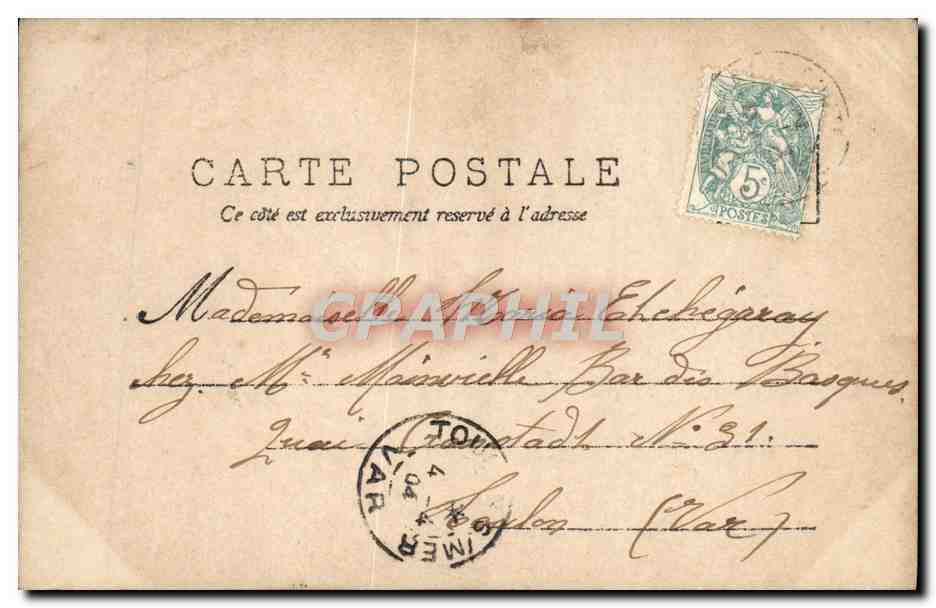 CARTE POSTALE
Ce côté est exclusivement reservé à l'adresse
5c
POSTES
Mademoiselle Maria Etchégaray
CPAPHIL
chez Mr Mainvielle Bar des Basques
Quai Cronstadt No 31.
Toulon (Var)
TOU
VAR
4 - 4
04
MER